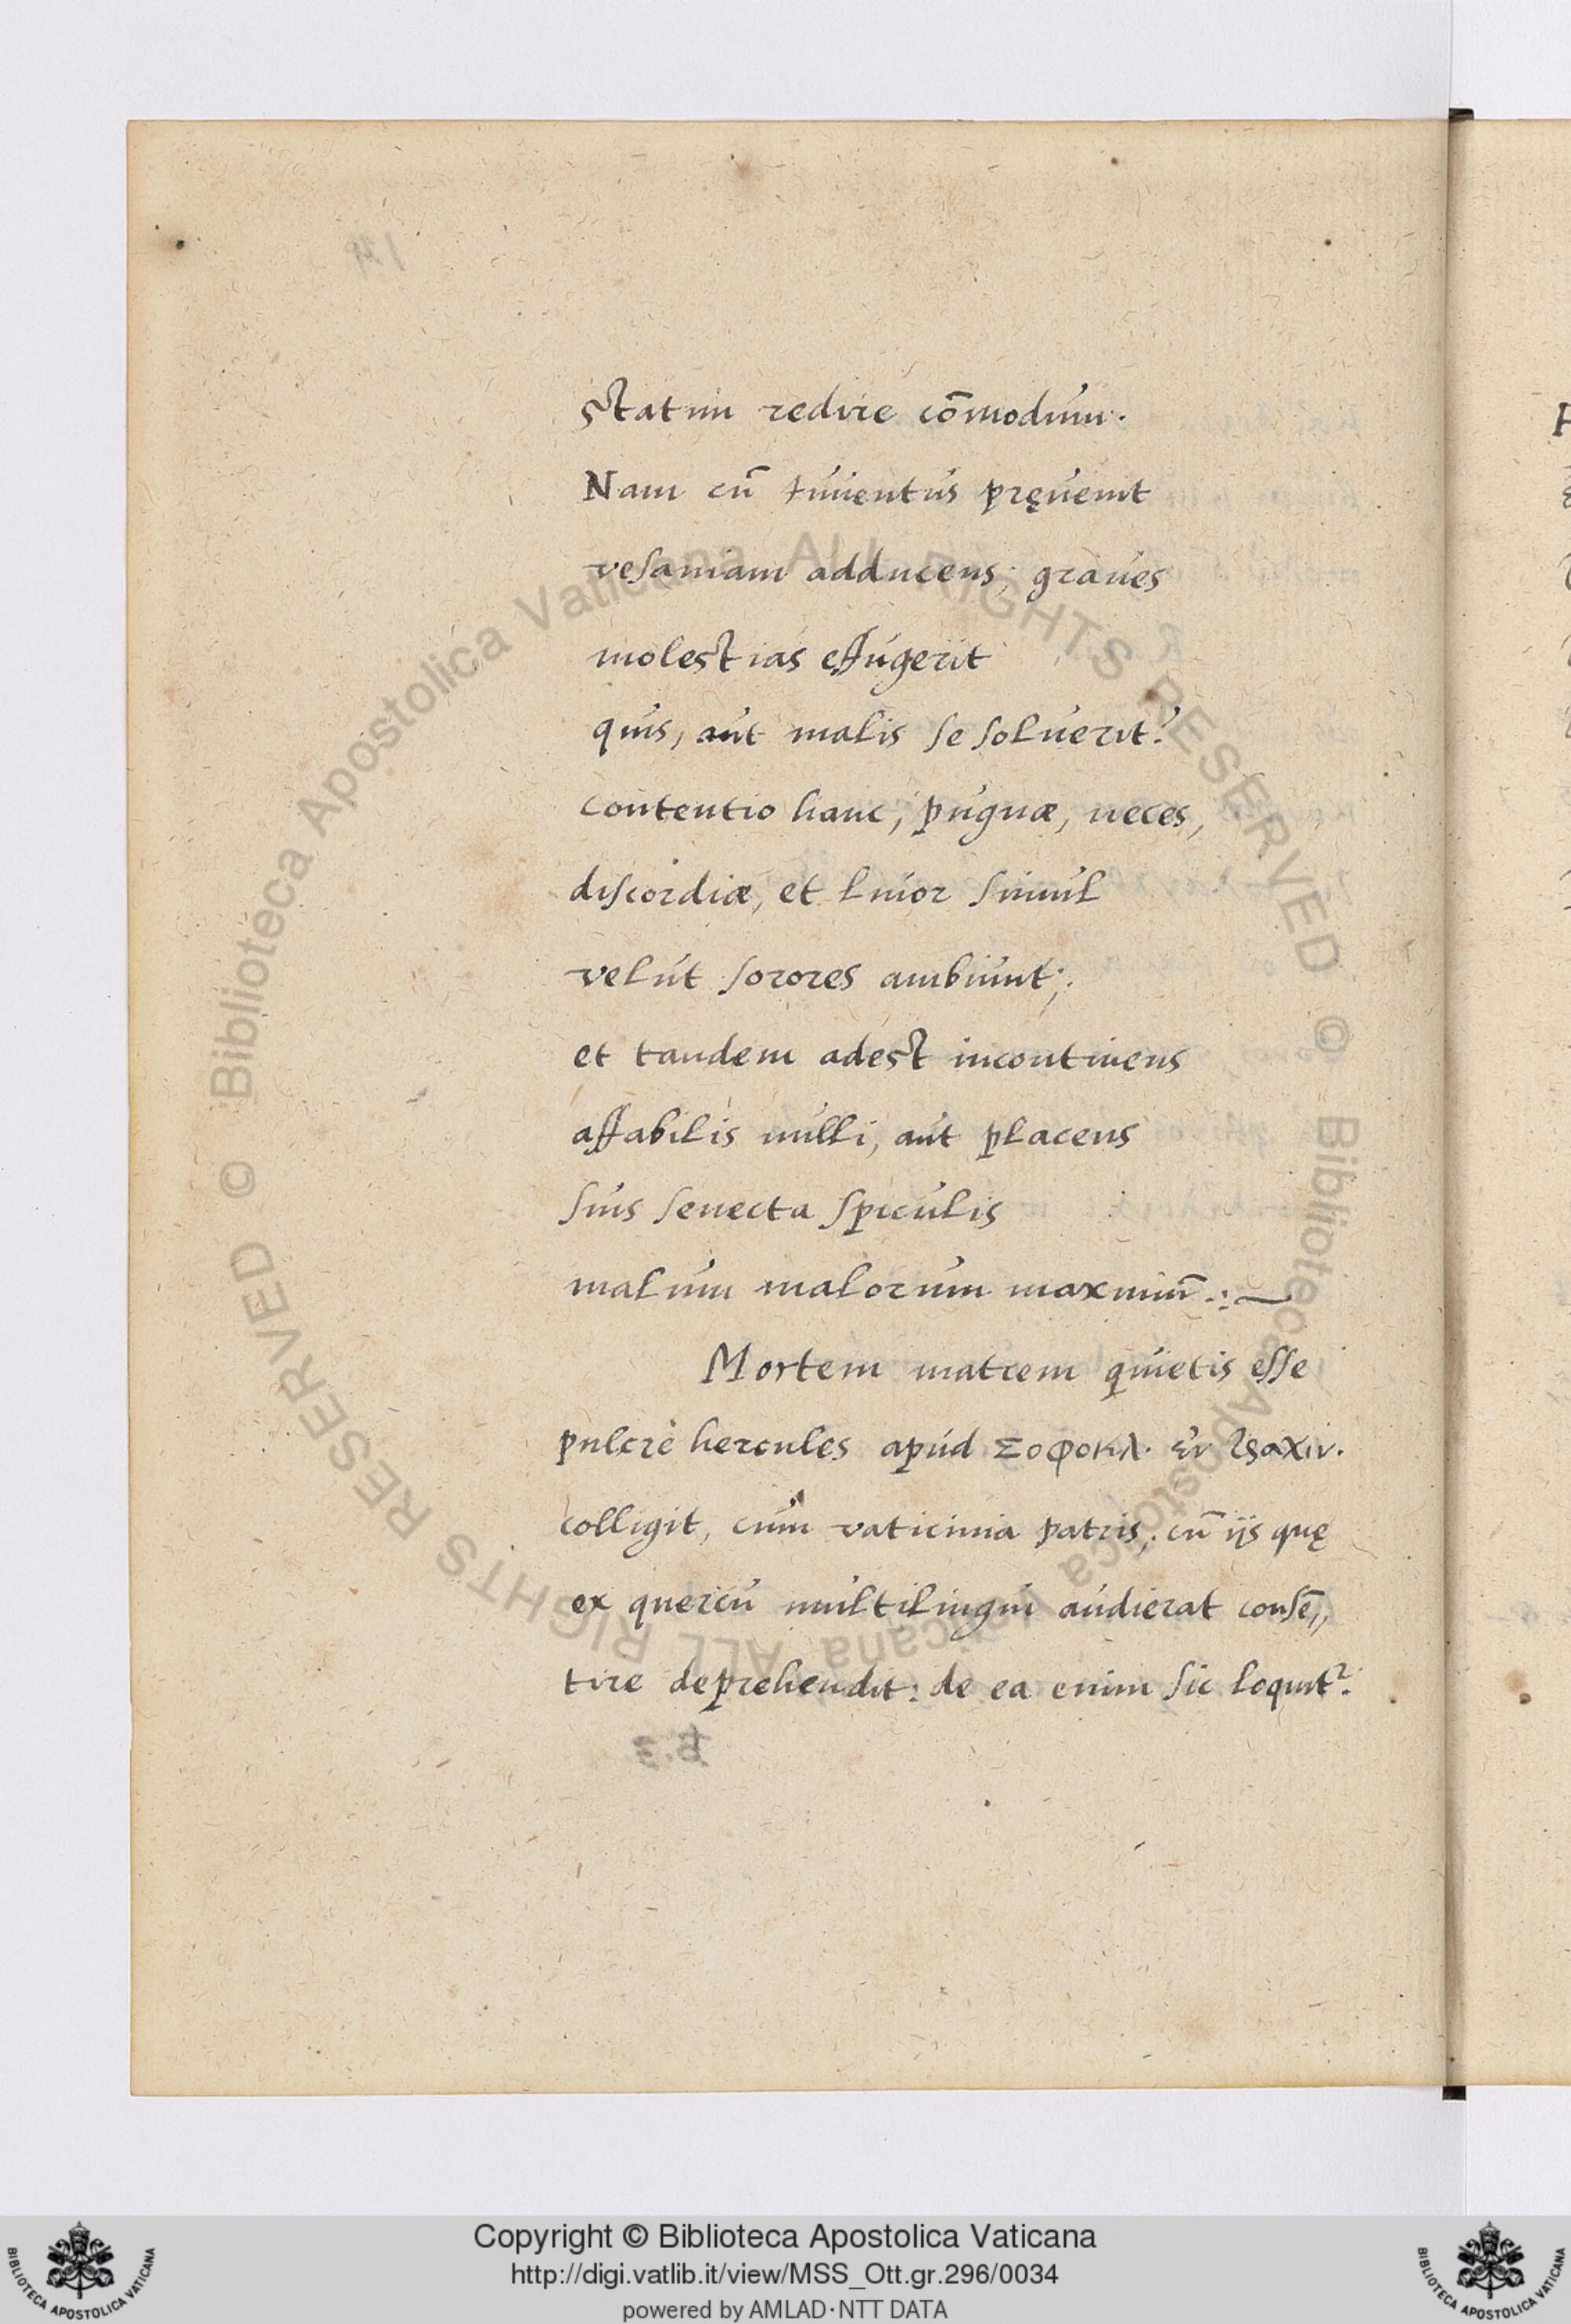 statim redire cōmodum.
Nam cū iuuentus pręuenit
vesaniam adducens, graues
molestias effugerit
quis, aut malis se soluerit?
contentio hanc, pugnæ, neces,
discordiæ, et liuor simul
velut sorores ambiunt;
et tandem adest incontinens
affabilis nulli, aut placens
suis senecta spiculis
malum malorum maximū.:~
Mortem matrem quietis esse
pulcrè hercules apud Σοφοκλ. ἐν τραχιν.
colligit, cum vaticinia patris, cū ijs quę
ex quercu multilingui audierat consē,,
tire deprehendit: de ea enim sic loquit².
B.3
© Biblioteca Apostolica Vaticana ALL RIGHTS RESERVED
© Biblioteca Apostolica Vaticana ALL RIGHTS RESERVED
Copyright © Biblioteca Apostolica Vaticana
http://digi.vatlib.it/view/MSS_Ott.gr.296/0034
powered by AMLAD·NTT DATA
BIBLIOTECA APOSTOLICA VATICANA
BIBLIOTECA APOSTOLICA VATICANA